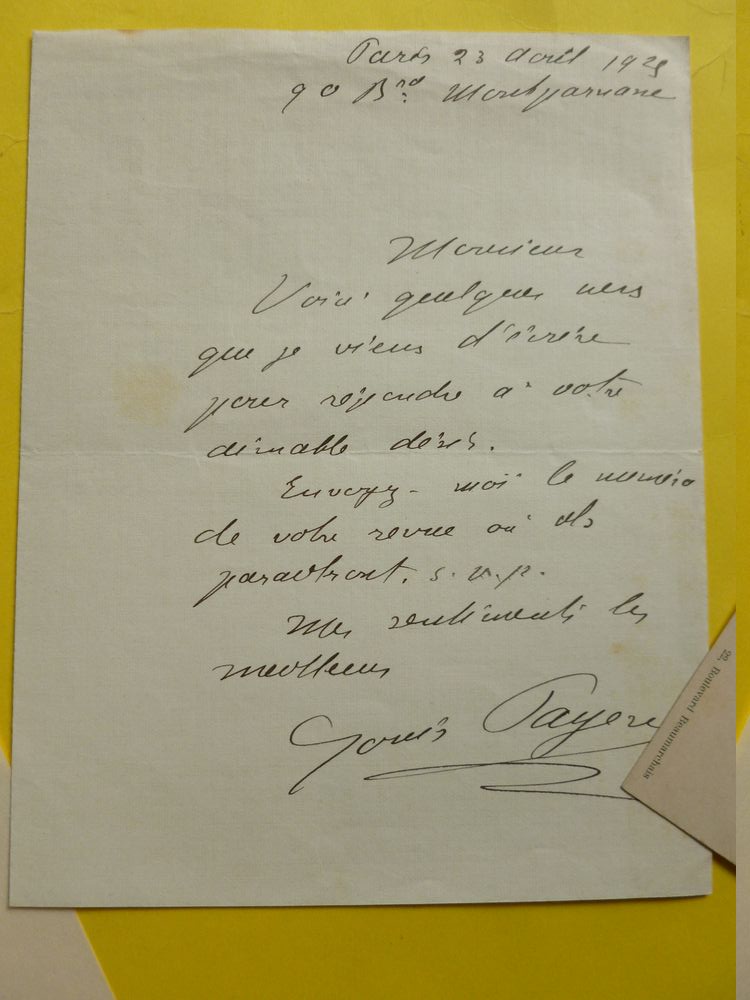 Paris 23 avril 1925
90 Bard Montparnasse
Monsieur
Voici quelques vers
que je viens d'écrire
pour répondre à votre
aimable désir.
Envoyez-moi le numéro
de votre revue où ils
paraîtront. s.v.p.
Mes sentiments les
meilleurs
Louis Payen
22, Boulevard Beaumarchais